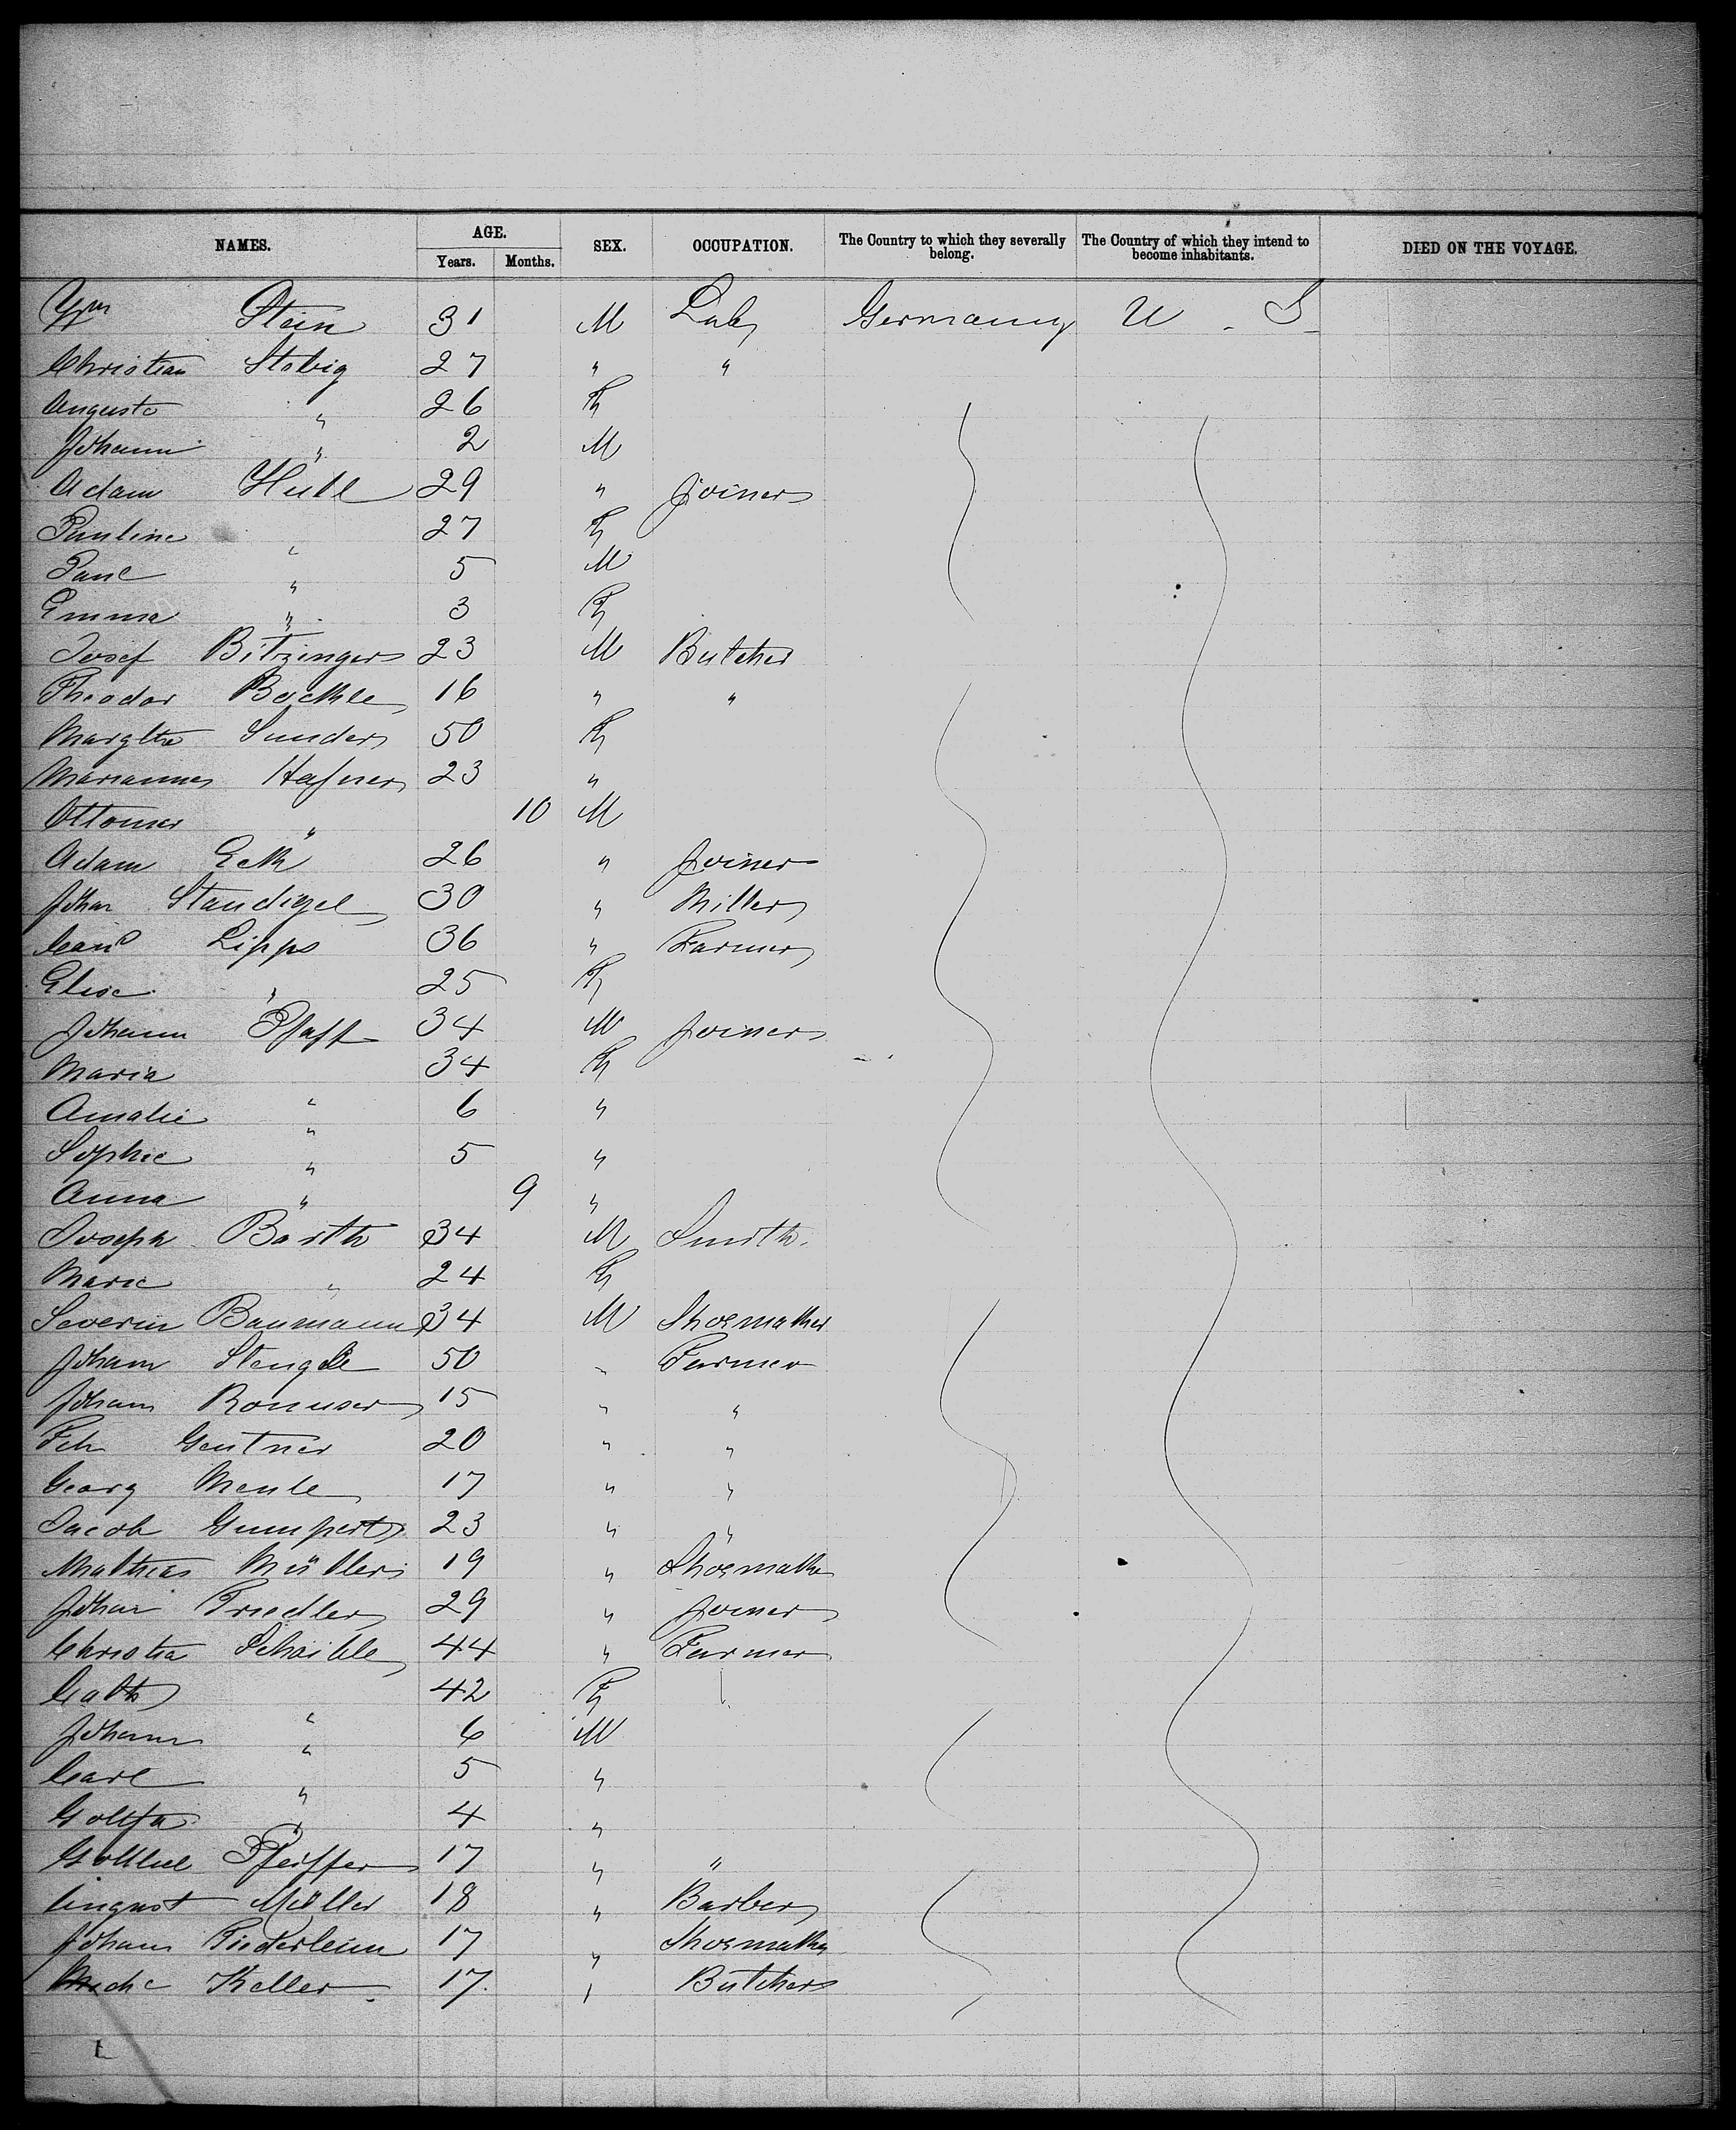 NAMES. AGE. SEX. OCCUPATION. The Country to which they severally belong. The Country of which they intend to become inhabitants. DIED ON THE VOYAGE.
Years. Months.
Wm Stein 31 M Lab Germany U. S.
Christian Stobig 27 " "
Auguste " 26 F
Johann " 2 M
Adam 29 " Joiner
Pauline " 27 F
Paul " 5 M
Emma " 3 F
Josef Bitzinger 23 M Butcher
Theodor Bockle 16 " "
Margtha Sunder 50 F
Marianne Hafner 23 "
Ottomar " 10 M
Adam Eck 26 " Joiner
Johan Standigel 30 " Miller
Lipps 36 " Farmer
Elise " 25 F
Johann Pfaff 34 M Joiner
Maria " 34 F
Amalie " 6 "
Sophie " 5 "
Anna " 9 "
Joseph Barth 34 M Smith.
Marie " 24 F
Severin Baumann 34 M Shoemaker
Johann Stengele 50 " Farmer
Johann 15 " "
Gentner 20 " "
Georg Menle 17 " "
Jacob Gumpert 23 " "
Mathias Müller 19 " Shoemaker
Johan Friedler 29 " Joiner
Christia Schaible 44 " Farmer
Cath " 42 F
Johann " 6 M
Carl " 5 "
" 4 "
Gottlieb Pfeiffer 17 " "
August Müller 18 " Barber
Johann Fiederlein 17 " Shoemaker
Keller 17 " Butcher